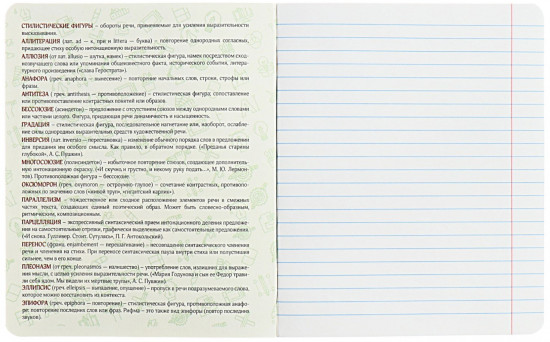 СТИЛИСТИЧЕСКИЕ ФИГУРЫ – обороты речи, применяемые для усиления выразительности
высказывания.
АЛЛИТЕРАЦИЯ (лат. ad – к, при и littera – буква) – повторение однородных согласных,
придающее стиху особую интонационную выразительность.
АЛЛЮЗИЯ (от лат. allusio – шутка, намек) – стилистическая фигура, намек посредством сход-
нозвучащего слова или упоминания общеизвестного факта, исторического события, литера-
турного произведения («слава Герострата»).
АНАФОРА (греч. anaphora – вынесение) – повторение начальных слов, строки, строфы или
фразы.
АНТИТЕЗА ( греч. antithesis – противоположение) – стилистическая фигура; сопоставление
или противопоставление контрастных понятий или образов.
БЕССОЮЗИЕ (асиндетон) – предложение с отсутствием союзов между однородными словами
или частями целого. Фигура, придающая речи динамичность и насыщенность.
ГРАДАЦИЯ – стилистическая фигура, последовательное нагнетание или, наоборот, ослабле-
ние силы однородных выразительных средств художественной речи.
ИНВЕРСИЯ (лат. inversia – перестановка) – изменение обычного порядка слов в предложении
для придания им особого смысла. Как правило, в обратном порядке: («Преданья старины
глубокой», А. С. Пушкин).
МНОГОСОЮЗИЕ (полисиндетон) – избыточное повторение союзов, создающее дополнитель-
ную интонационную окраску. («И скучно, и грустно, и некому руку подать...», М. Ю. Лермон-
тов). Противоположная фигура – бессоюзие.
ОКСЮМОРОН (греч. oxymoron – остроумно-глупое) – сочетание контрастных, противопо-
ложных по значению слов («живой труп», «гигантский карлик»).
ПАРАЛЛЕЛИЗМ – тождественное или сходное расположение элементов речи в смежных
частях текста, создающих единый поэтический образ. Может быть словесно-образным,
ритмическим, композиционным.
ПАРЦЕЛЛЯЦИЯ – экспрессивный синтаксический прием интонационного деления предложе-
ния на самостоятельные отрезки, графически выделенные как самостоятельные предложения
(«И снова. Гулливер. Стоит. Сутулясь», П. Г. Антокольский).
ПЕРЕНОС (франц. enjambement – перешагивание) – несовпадение синтаксического членения
речи и членения на стихи. При переносе синтаксическая пауза внутри стиха или полустишия
сильнее, чем в его конце.
ПЛЕОНАЗМ (от греч. pleonasmos – излишество) – употребление слов, излишних для выраже-
ния мысли, с целью усиления выразительности речи. («Мария Годунова и сын ее Федор трави-
ли себя ядом. Мы видели их мертвые трупы», А. С. Пушкин)
ЭЛЛИПСИС (греч. elleipsis – выпадение, опущение) – пропуск в речи подразумеваемого слова,
которое можно восстановить из контекста.
ЭПИФОРА (греч. epiphora – повторение) – стилистическая фигура, противоположная анафо-
ре: повторение последних слов или фраз. Рифма – это также вид эпифоры (повтор последних
звуков).